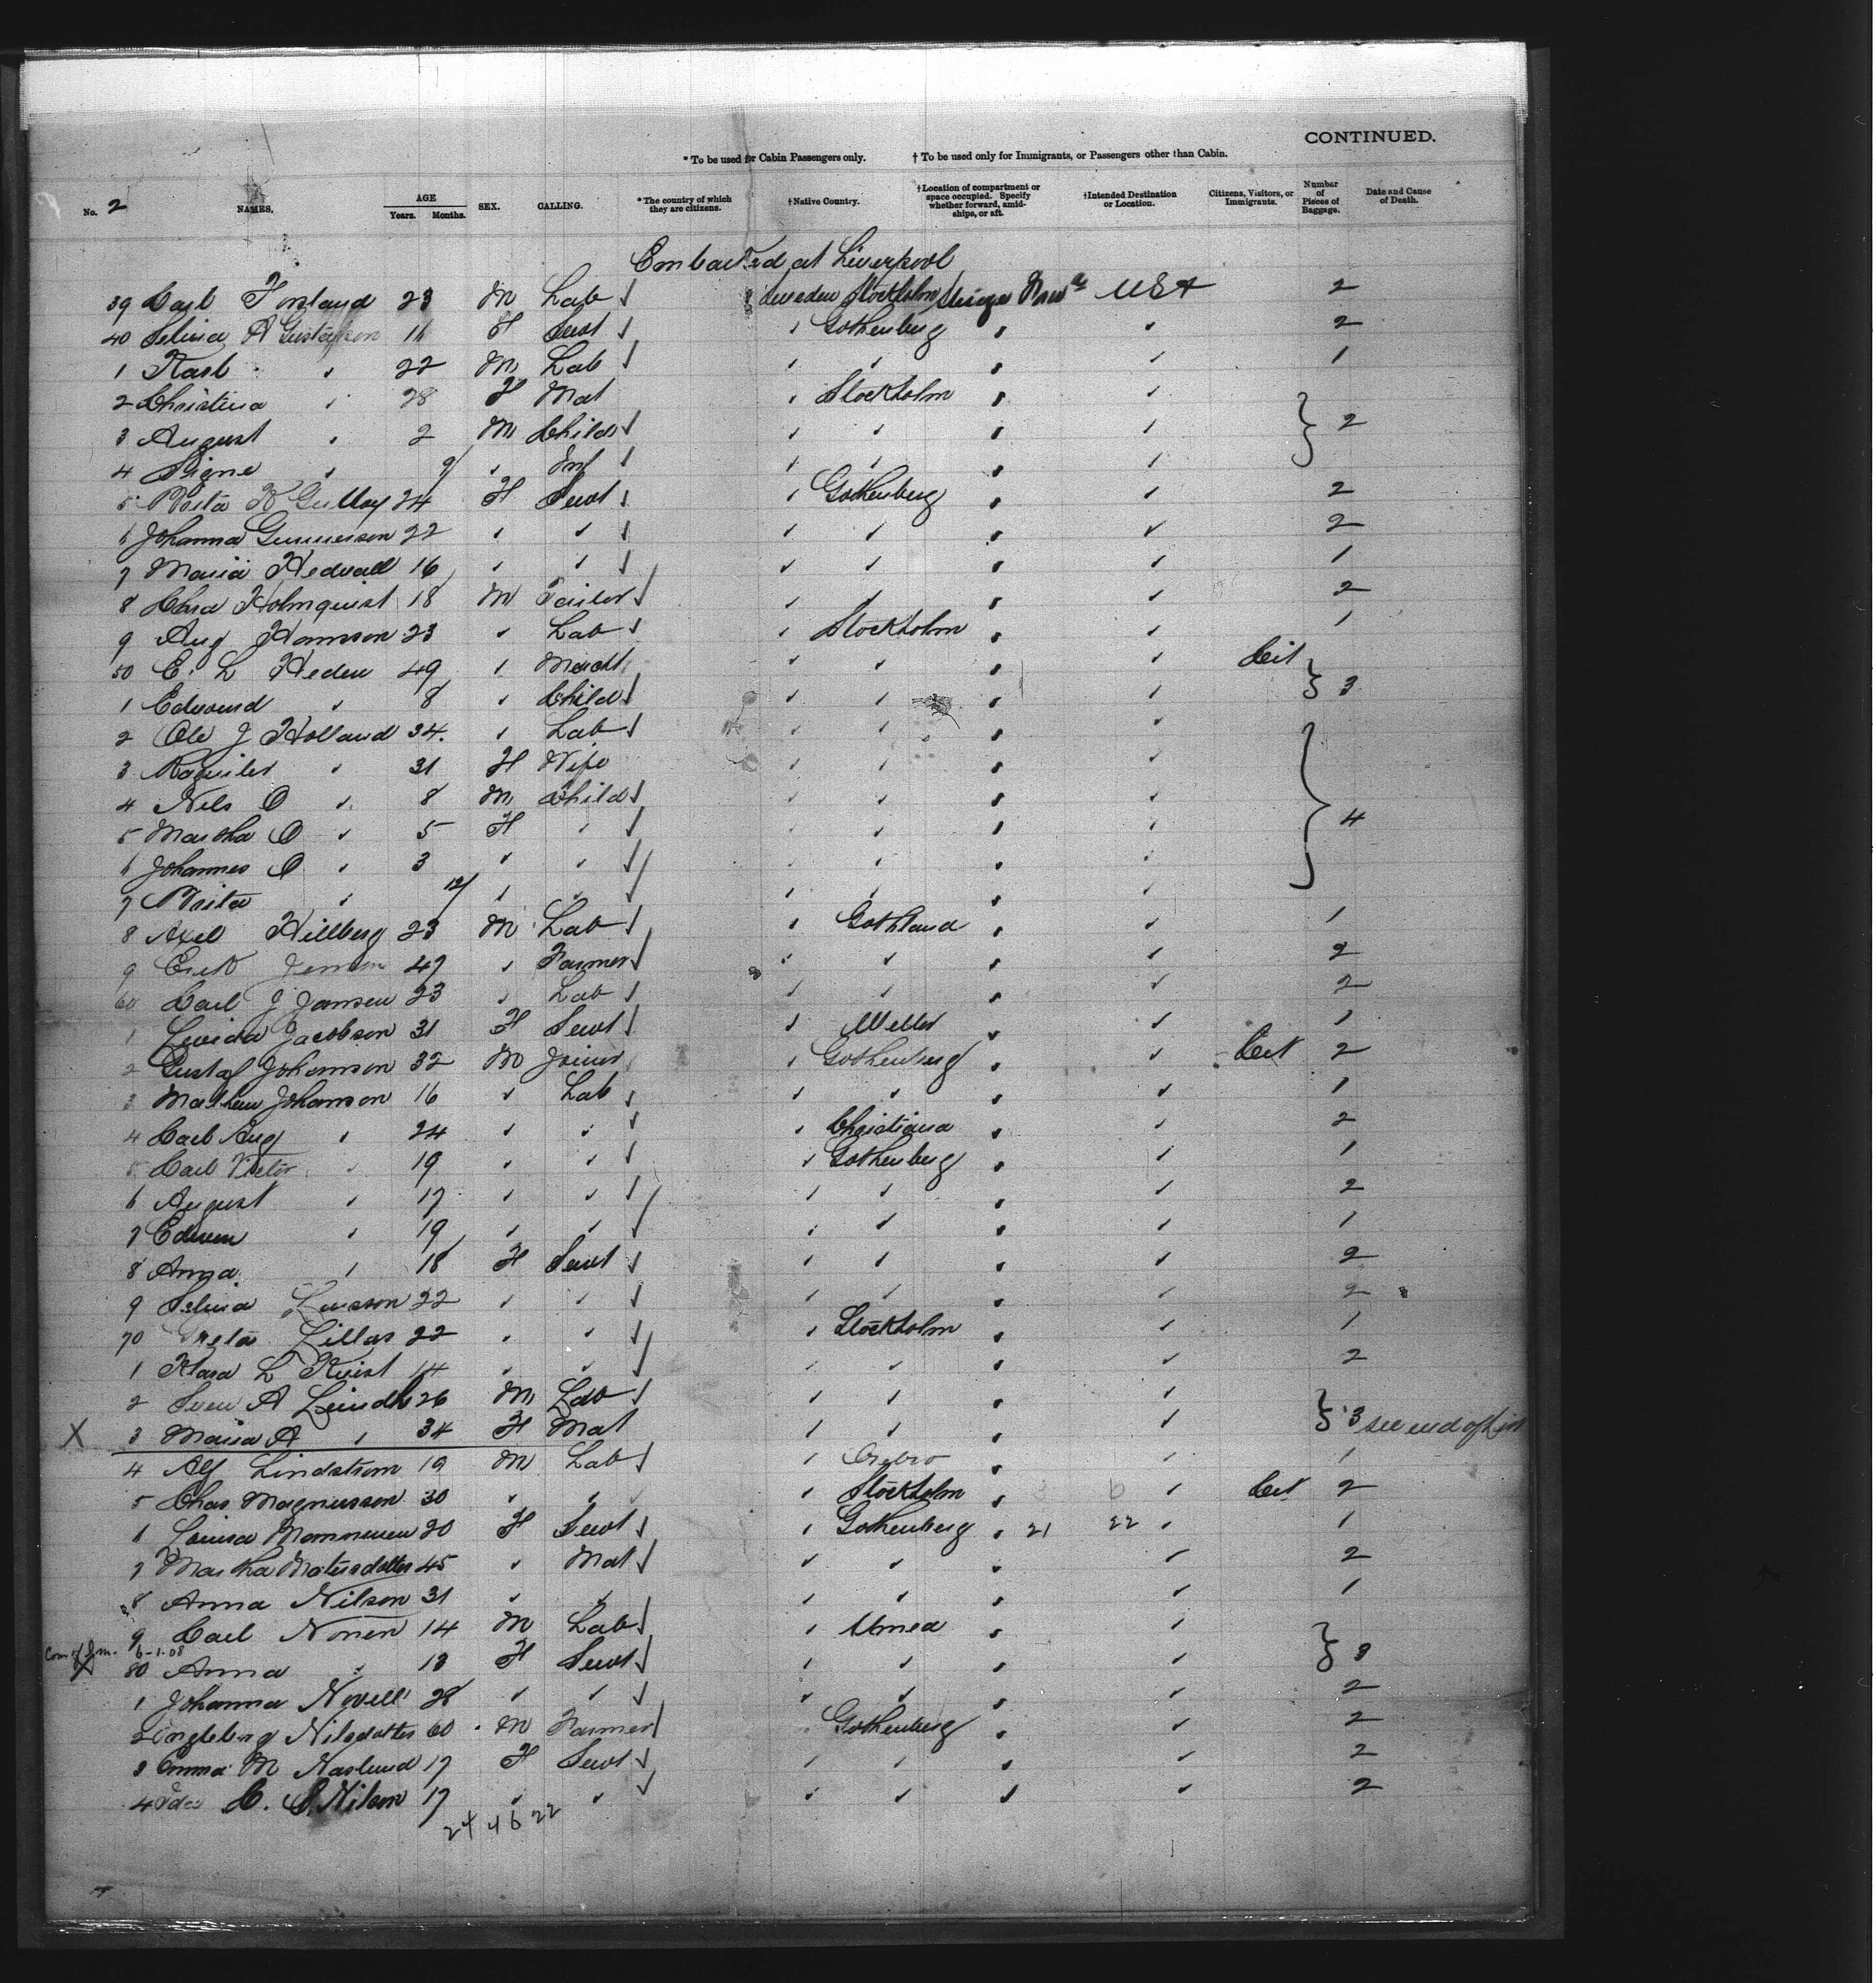 CONTINUED.
* To be used for Cabin Passengers only. † To be used only for Immigrants, or Passengers other than Cabin.
No. 2 NAMES. AGE Years. Months. SEX. CALLING. * The country of which they are citizens. †Native Country. †Location of compartment or space occupied. Specify whether forward, amidships, or aft. †Intended Destination or Location. Citizens, Visitors, or Immigrants. Number of Pieces of Baggage. Date and Cause of Death.
Embarked at Liverpool
39 Carl Forsland 23 M Lab Sweden Stockholm USA 2
40 Selina A Gustafson 16 F Servt Gothenberg 2
1 Karl 22 M Lab 1
2 Christina 28 F Mat Stockholm
3 August 2 M Child 2
4 Signe 9/ Inf
5 24 F Servt Gothenberg 2
6 Johanna Gunnerson 22 2
7 Maria Hedvall 16 1
8 Holmquist 18 M Tailor 2
9 Aug Hannson 23 Lab Stockholm 1
50 E. L Heden 49 Marcht Cit
1 Edward 8 Child 3
2 Ole J Holland 34. Lab
3 31 F Wife
4 Nels O 8 M Child
5 Martha O 5 F 4
6 Johannes O 3
7 Brita 12/
8 Axel Hillberg 23 M Lab Gothland 1
9 Erik 47 Farmer 2
60 Carl J Jansen 23 Lab 2
1 Jacobson 31 F Servt 1
2 Gustaf Johannson 32 M Joiner Gothenberg Cit 2
3 Mathew Johanson 16 Lab 1
4 Carl Aug 24 Christiana 2
5 Carl Victor 19 Gothenberg 1
6 August 17 2
7 Edwin 19 1
8 Anna 18 F Servt 2
9 Selma 22 2
70 Greta Lillas 22 Stockholm 1
1 Klara L 14 2
2 Sven A 26 M Lab
X 3 Maria A 34 F Mat 3 see end of List
4 Alf Lindstrom 19 M Lab Orebro 1
5 Chas Magnusson 30 Stockholm Cit 2
6 Louisa 20 F Servt Gothenberg 21 22 1
7 Martha 45 Mat 2
8 Anna Nilson 31 1
9 Carl Noren 14 M Lab Umea
Com of Im. 6-1-08
X 80 Anna 13 F Servt 3
1 Johanna Novell 28 2
2 Ingleborg Nilsdotter 60 M Farmer Gothenberg 2
3 Emma M Naslund 17 F Servt 2
4 Ida C. S. Nilson 17 2
24 46 22